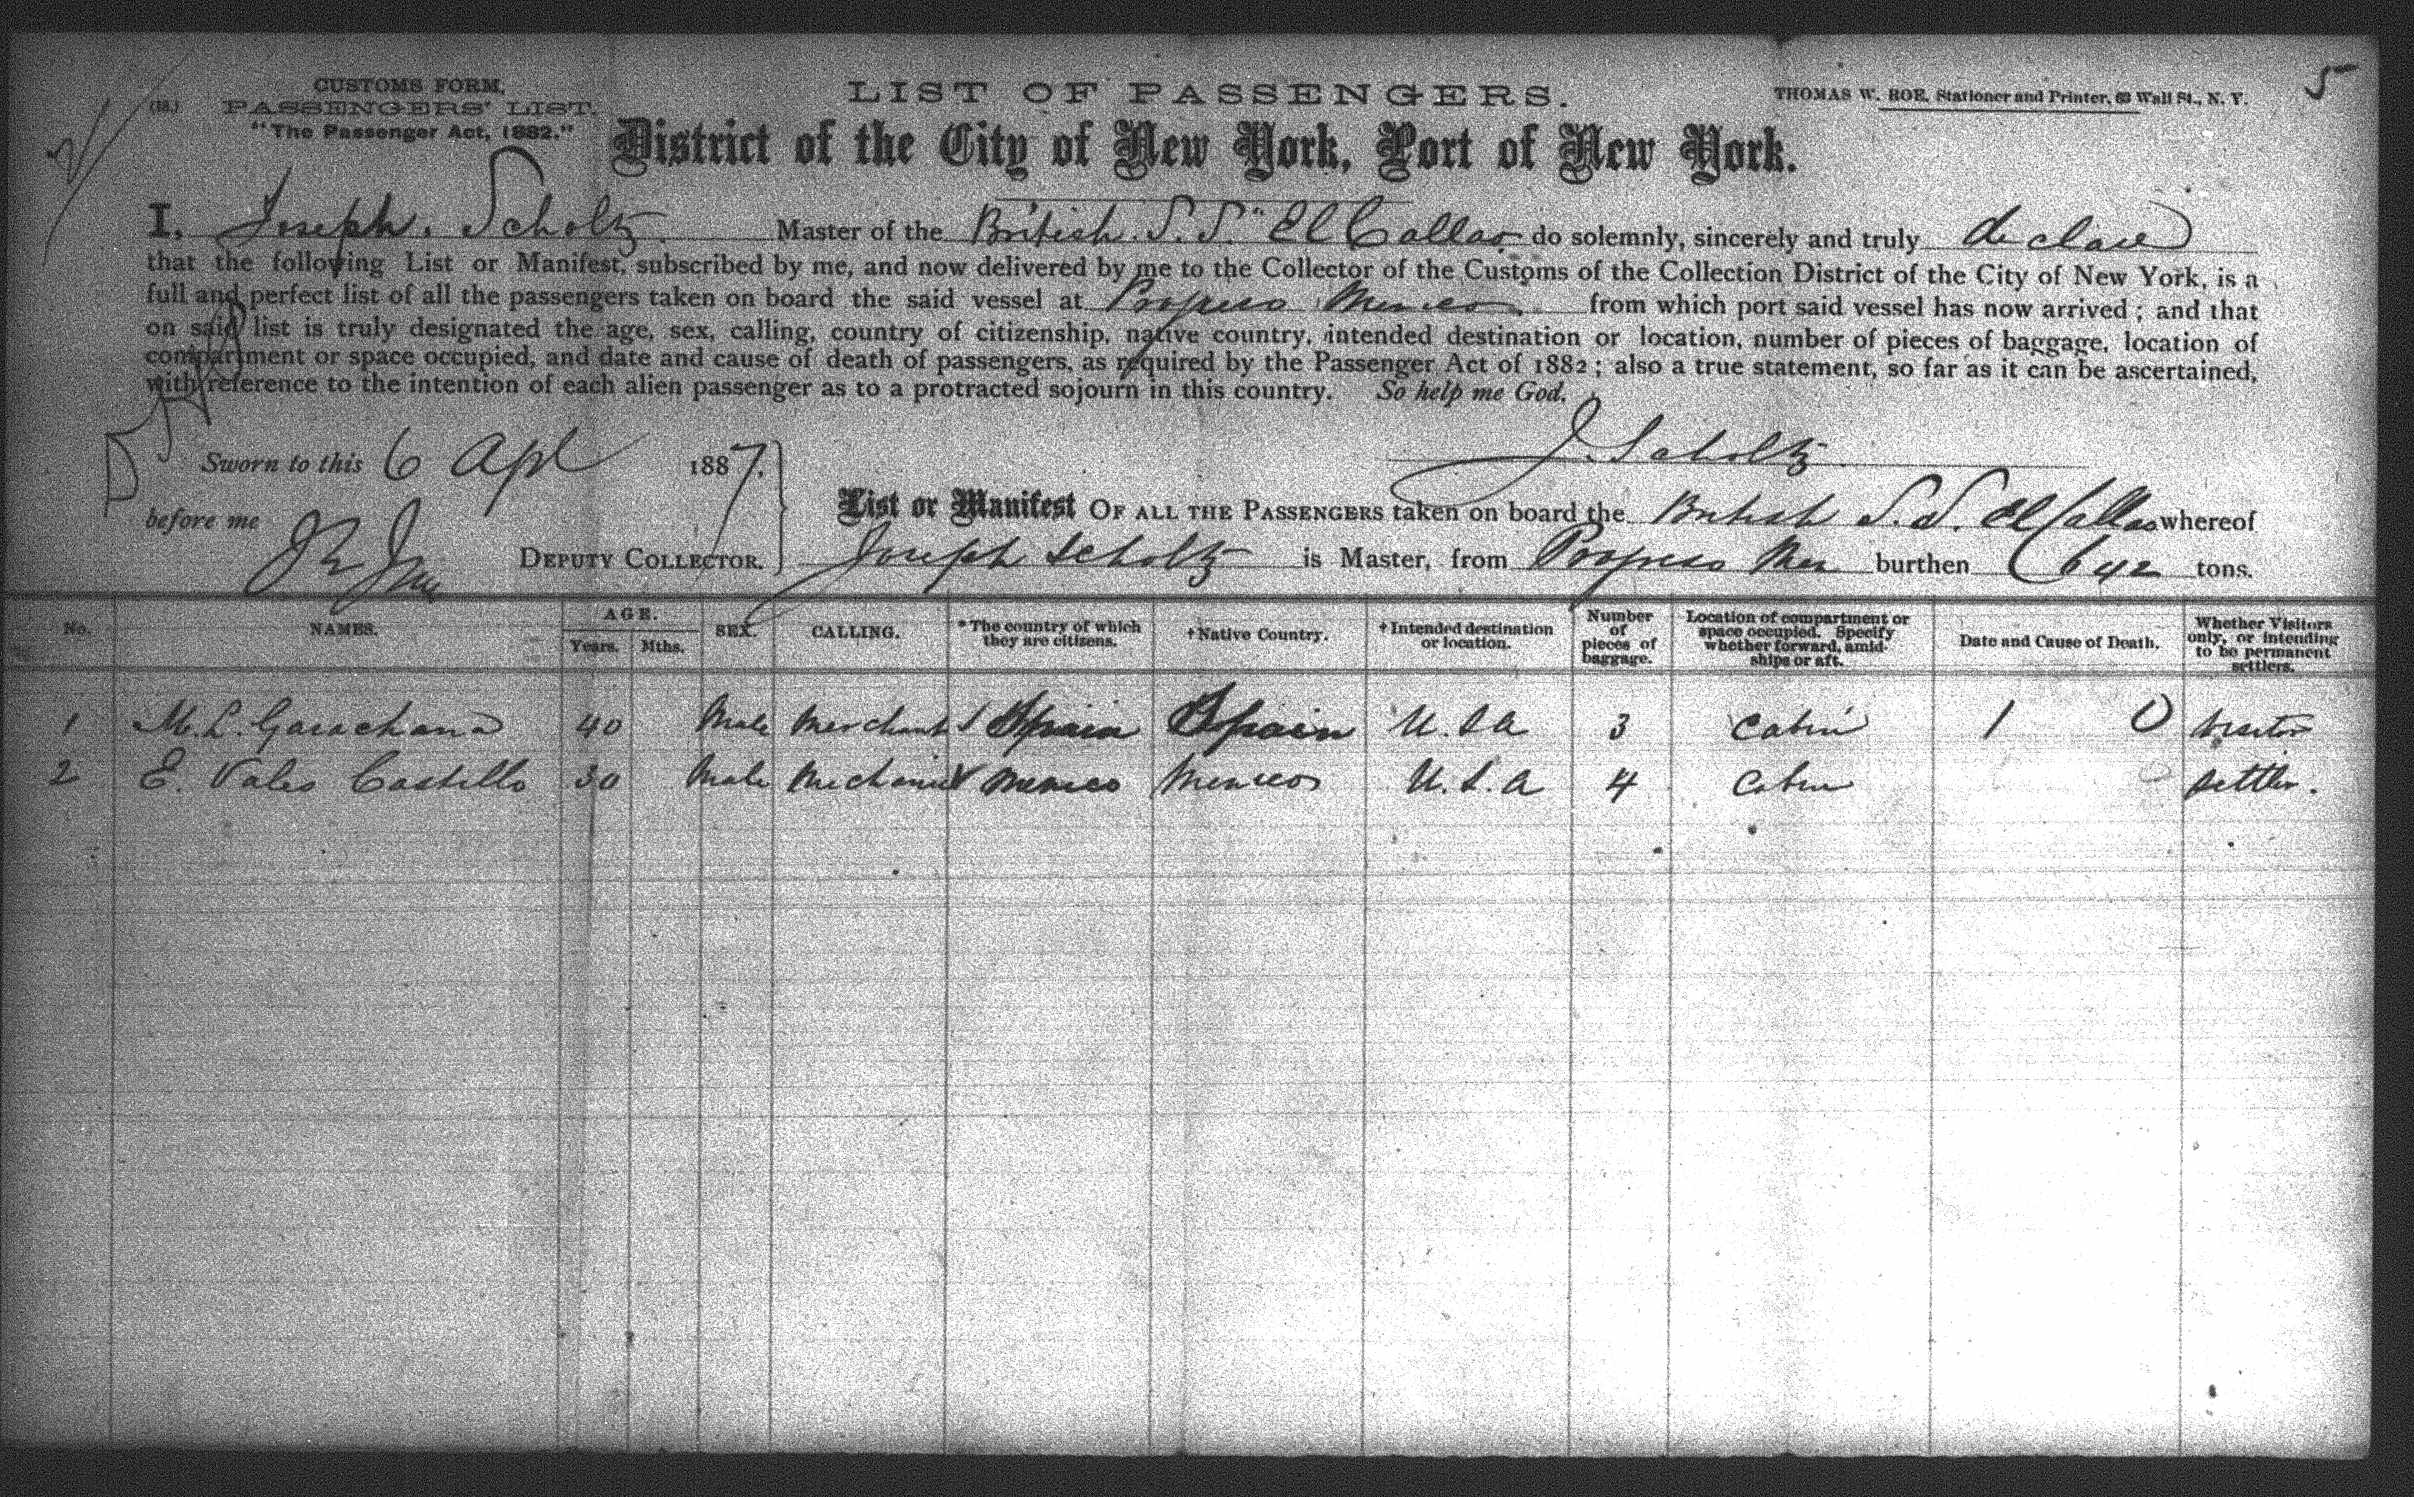 5
CUSTOMS FORM,
PASSENGERS' LIST.
"The Passenger Act, 1882."
LIST OF PASSENGERS.
THOMAS W. ROE, Stationer and Printer, Wall St., N. Y.
District of the City of New York, Port of New York.
I, Joseph. Scholtz Master of the British. S. S. "El Callao do solemnly, sincerely and truly declare
that the following List or Manifest, subscribed by me, and now delivered by me to the Collector of the Customs of the Collection District of the City of New York, is a
full and perfect list of all the passengers taken on board the said vessel at Progreso Mexico. from which port said vessel has now arrived; and that
on said list is truly designated the age, sex, calling, country of citizenship, native country, intended destination or location, number of pieces of baggage, location of
compartment or space occupied, and date and cause of death of passengers, as required by the Passenger Act of 1882; also a true statement, so far as it can be ascertained,
with reference to the intention of each alien passenger as to a protracted sojourn in this country. So help me God.
J. Scholtz
Sworn to this 6 Apl 1887.
before me
DEPUTY COLLECTOR.
List or Manifest OF ALL THE PASSENGERS taken on board the British S. S. El Callao whereof
Joseph Scholtz is Master, from Progreso Mex burthen 642 tons.
No. NAMES. AGE. Years. Mths. SEX. CALLING. *The country of which they are citizens. †Native Country. †Intended destination or location. Number of pieces of baggage. Location of compartment or space occupied. Specify whether forward, amid-ships or aft. Date and Cause of Death. Whether Visitors only, or intending to be permanent settlers.
1 M. L. Garachana 40 Male Merchant Spain Spain U.S.A 3 Cabin 1 0 visitor
2 E. Vales Castillo 30 Male Mechanic Mexico Mexico U.S.A 4 Cabin settler.